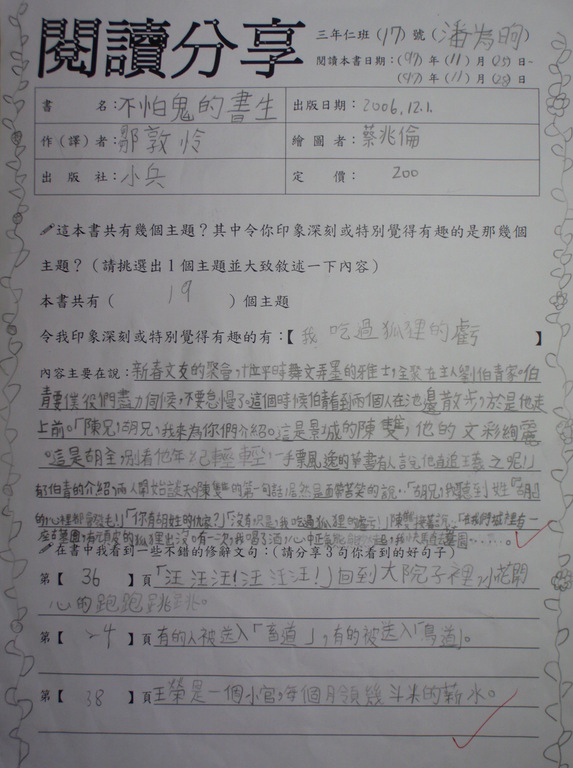 閱讀分享
三年仁班(17)號(潘為昫)
閱讀本書日期:(97)年(11)月(25)日~
(97)年(11)月(29)日
書名:不怕鬼的書生
出版日期:2006.12.1.
作(譯)者:鄒敦怜
繪圖者:蔡兆倫
出版社:小兵
定價:200
這本書共有幾個主題?其中令你印象深刻或特別覺得有趣的是那幾個
主題?(請挑選出1個主題並大致敘述一下內容)
本書共有(19)個主題
令我印象深刻或特別覺得有趣的有:【我吃過狐狸的虧】
內容主要在說:新春文友的聚會,十位平時舞文弄墨的雅士,全聚在主人劉伯青家。伯
青要僕役們盡力伺侯,不要怠慢了。這個時候伯青看到兩個人在池邊散步,於是他走
上前。「陳兄,胡兄,我來為你們介紹。這是景城的陳雙,他的文彩絢麗
。這是胡全,別看他年紀輕輕,一手飄逸的草書有人說他直追王羲之呢!」
有了伯青的介紹,兩人開始談天。陳雙的第一句話居然是面帶苦笑的說:「胡兄,我聽到姓「胡」
的,心裡都
「你有胡姓的仇家?」「沒有,只是,我吃過狐狸的虧!」陳雙接著說:
在書中我看到一些不錯的修辭文句:(請分享3句你看到的好句子)
第【36】頁「汪汪汪!汪汪汪!」回到大院子裡,小花開
心的跑跑跳跳。
第【24】頁有的人被送入「畜道」,有的被送入「鳥道」。
第【38】頁王榮是一個小官,每個月領幾斗米的薪水。